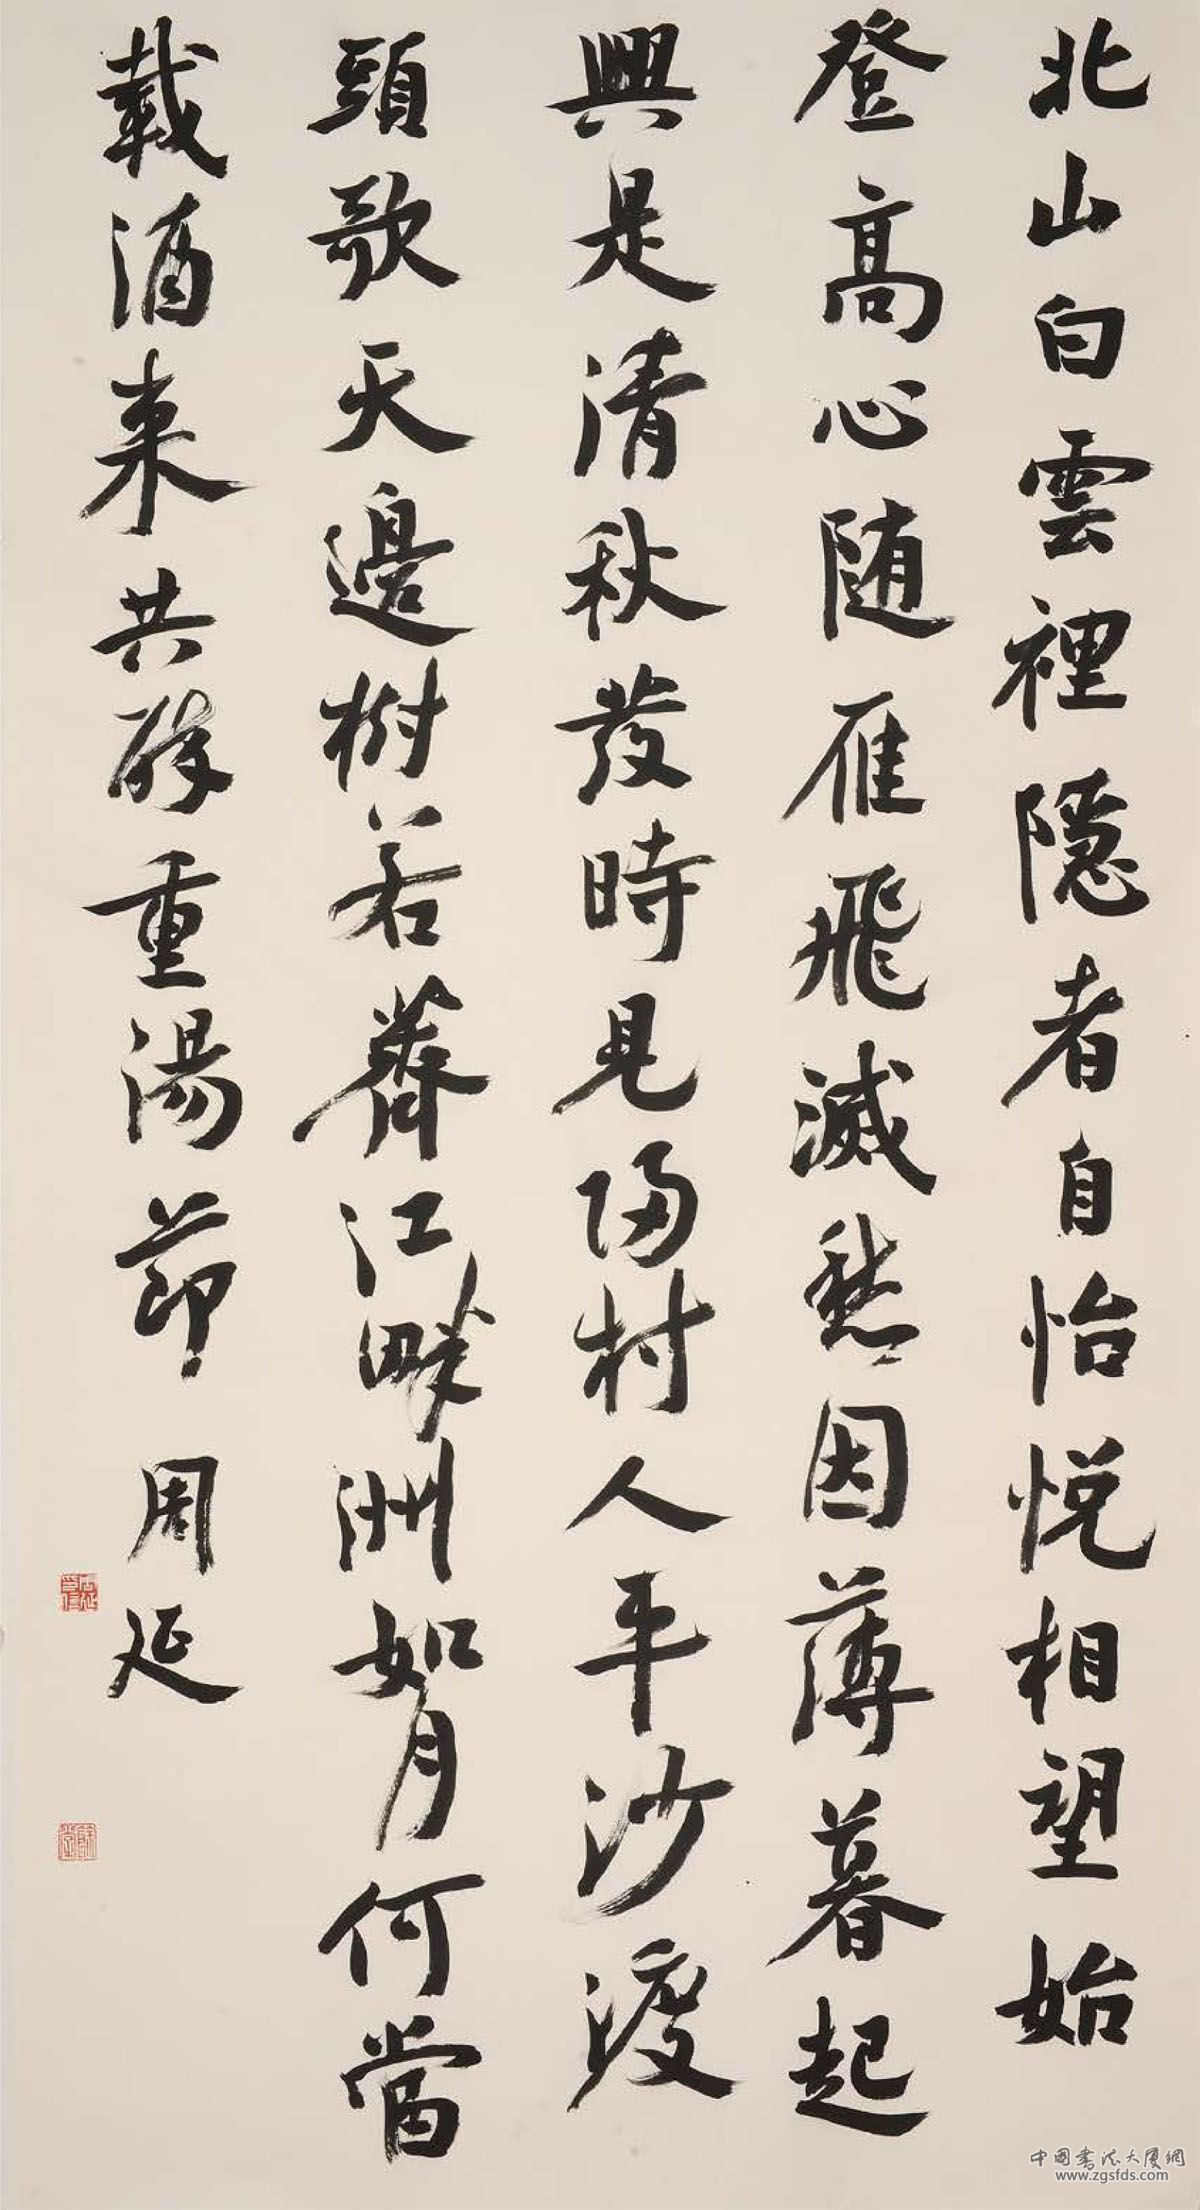 北山白雲裡隱者自怡悅相望始
登高心随雁飛滅愁因薄暮起
興是清秋發時見歸村人平沙渡
頭歌天邊樹若薺江畔洲如月何當
載酒来共醉重湯節 周延
周延印信
中国書法大廈網
www.zgsfds.com